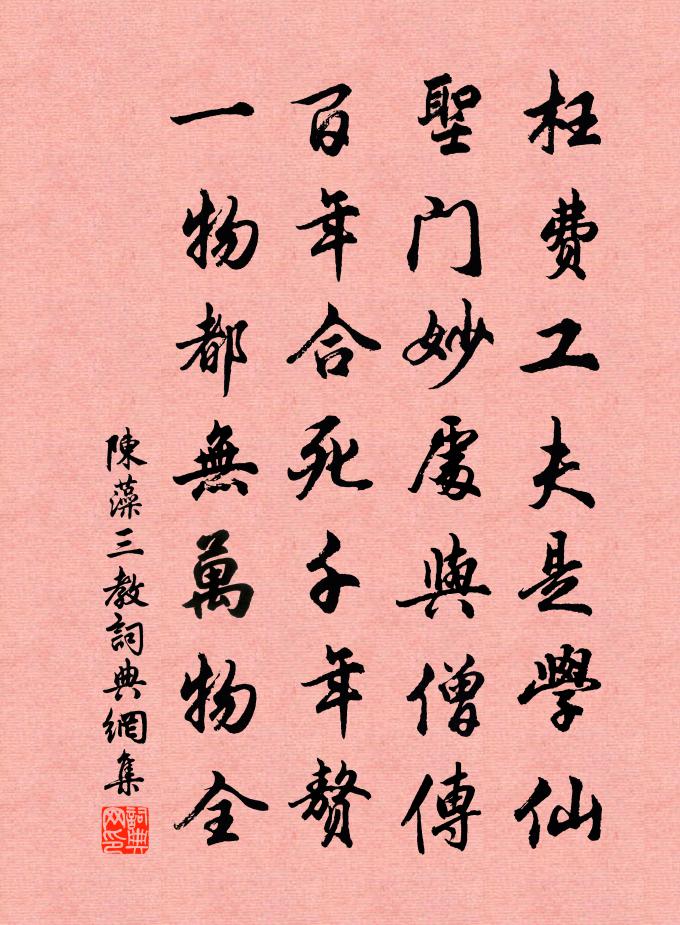 枉费工夫是學仙
聖门妙處與僧傳
百年合死千年贅
一物都無萬物全
陳藻三教詞典網集
詞典网印